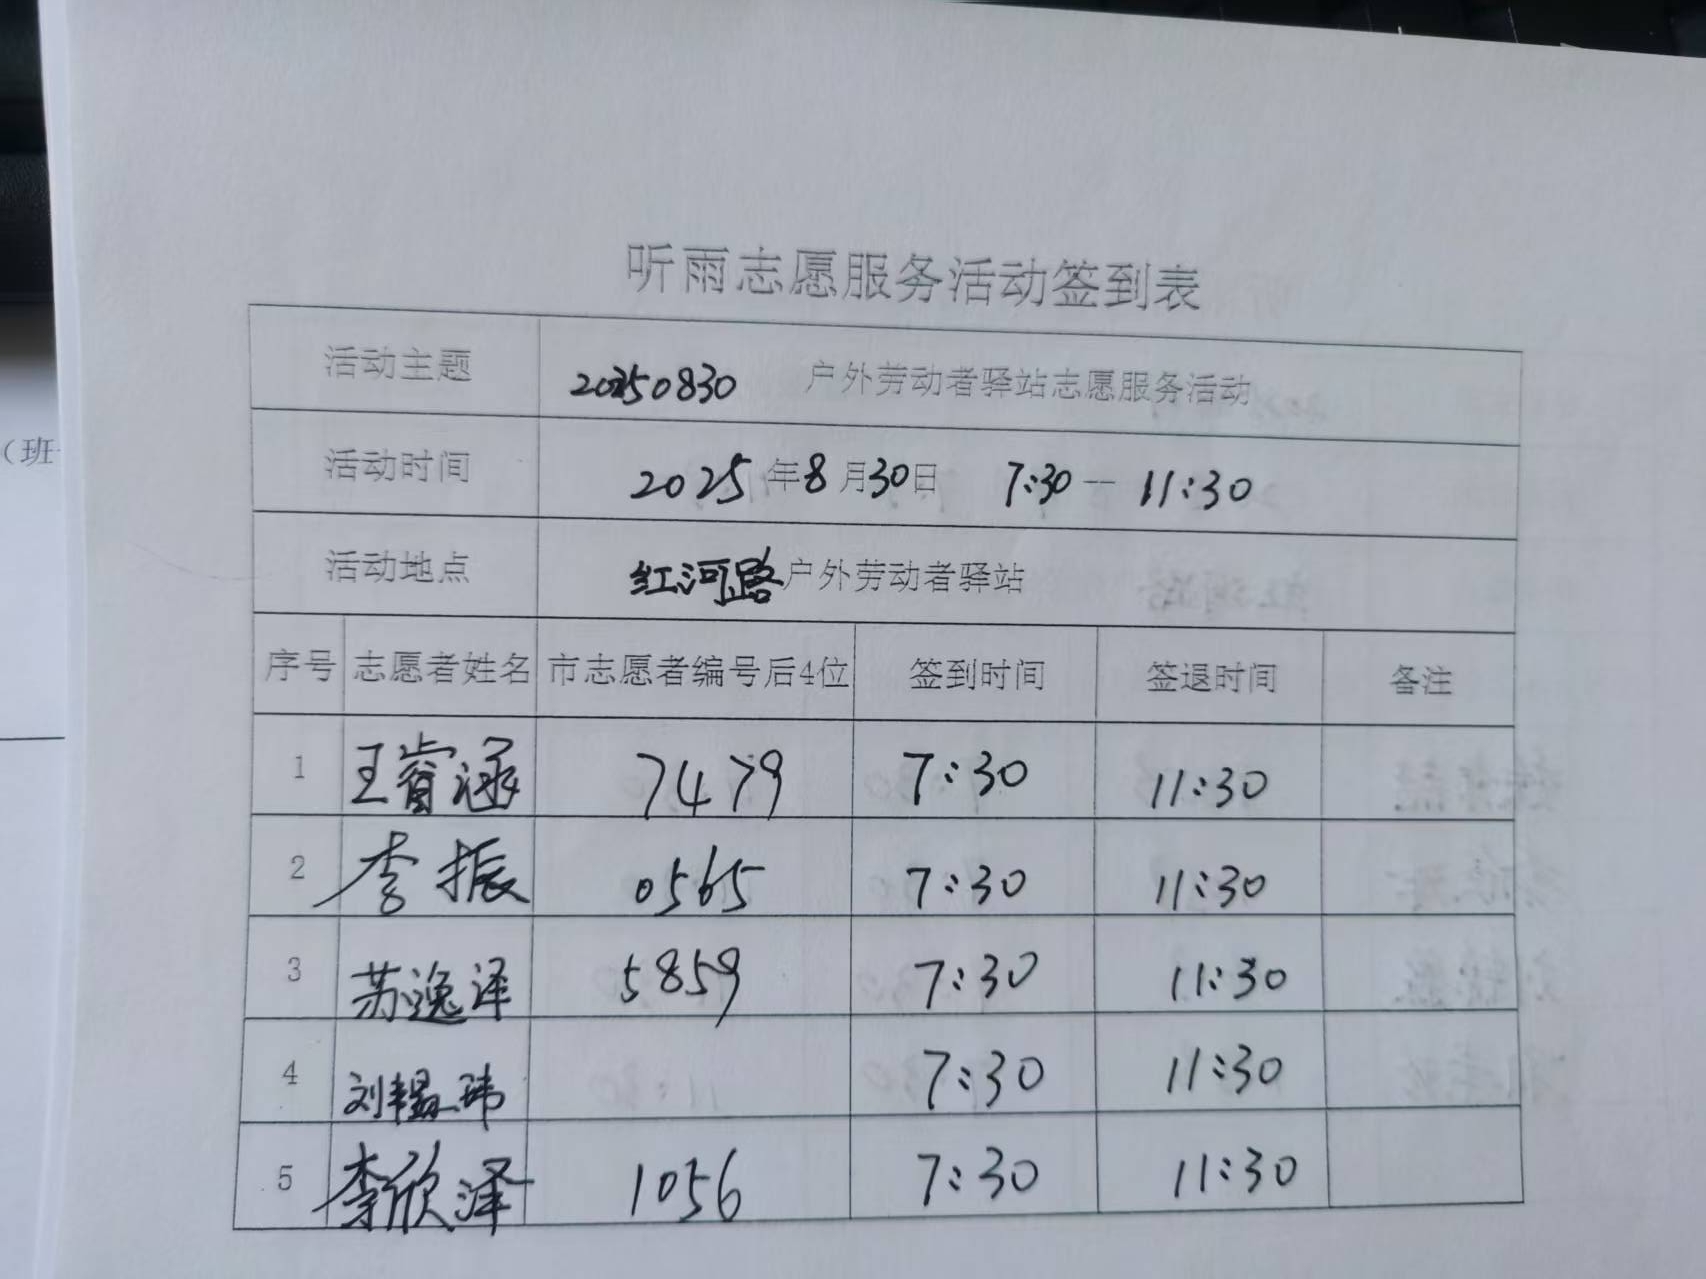 听雨志愿服务活动签到表
活动主题 20250830 户外劳动者驿站志愿服务活动
活动时间 2025年8月30日 7:30-11:30
活动地点 红河路户外劳动者驿站
序号 志愿者姓名 市志愿者编号后4位 签到时间 签退时间 备注
1 王睿涵 7479 7:30 11:30
2 李振 0565 7:30 11:30
3 苏逸泽 5859 7:30 11:30
4 刘韫玮 7:30 11:30
5 李欣泽 1056 7:30 11:30
(班